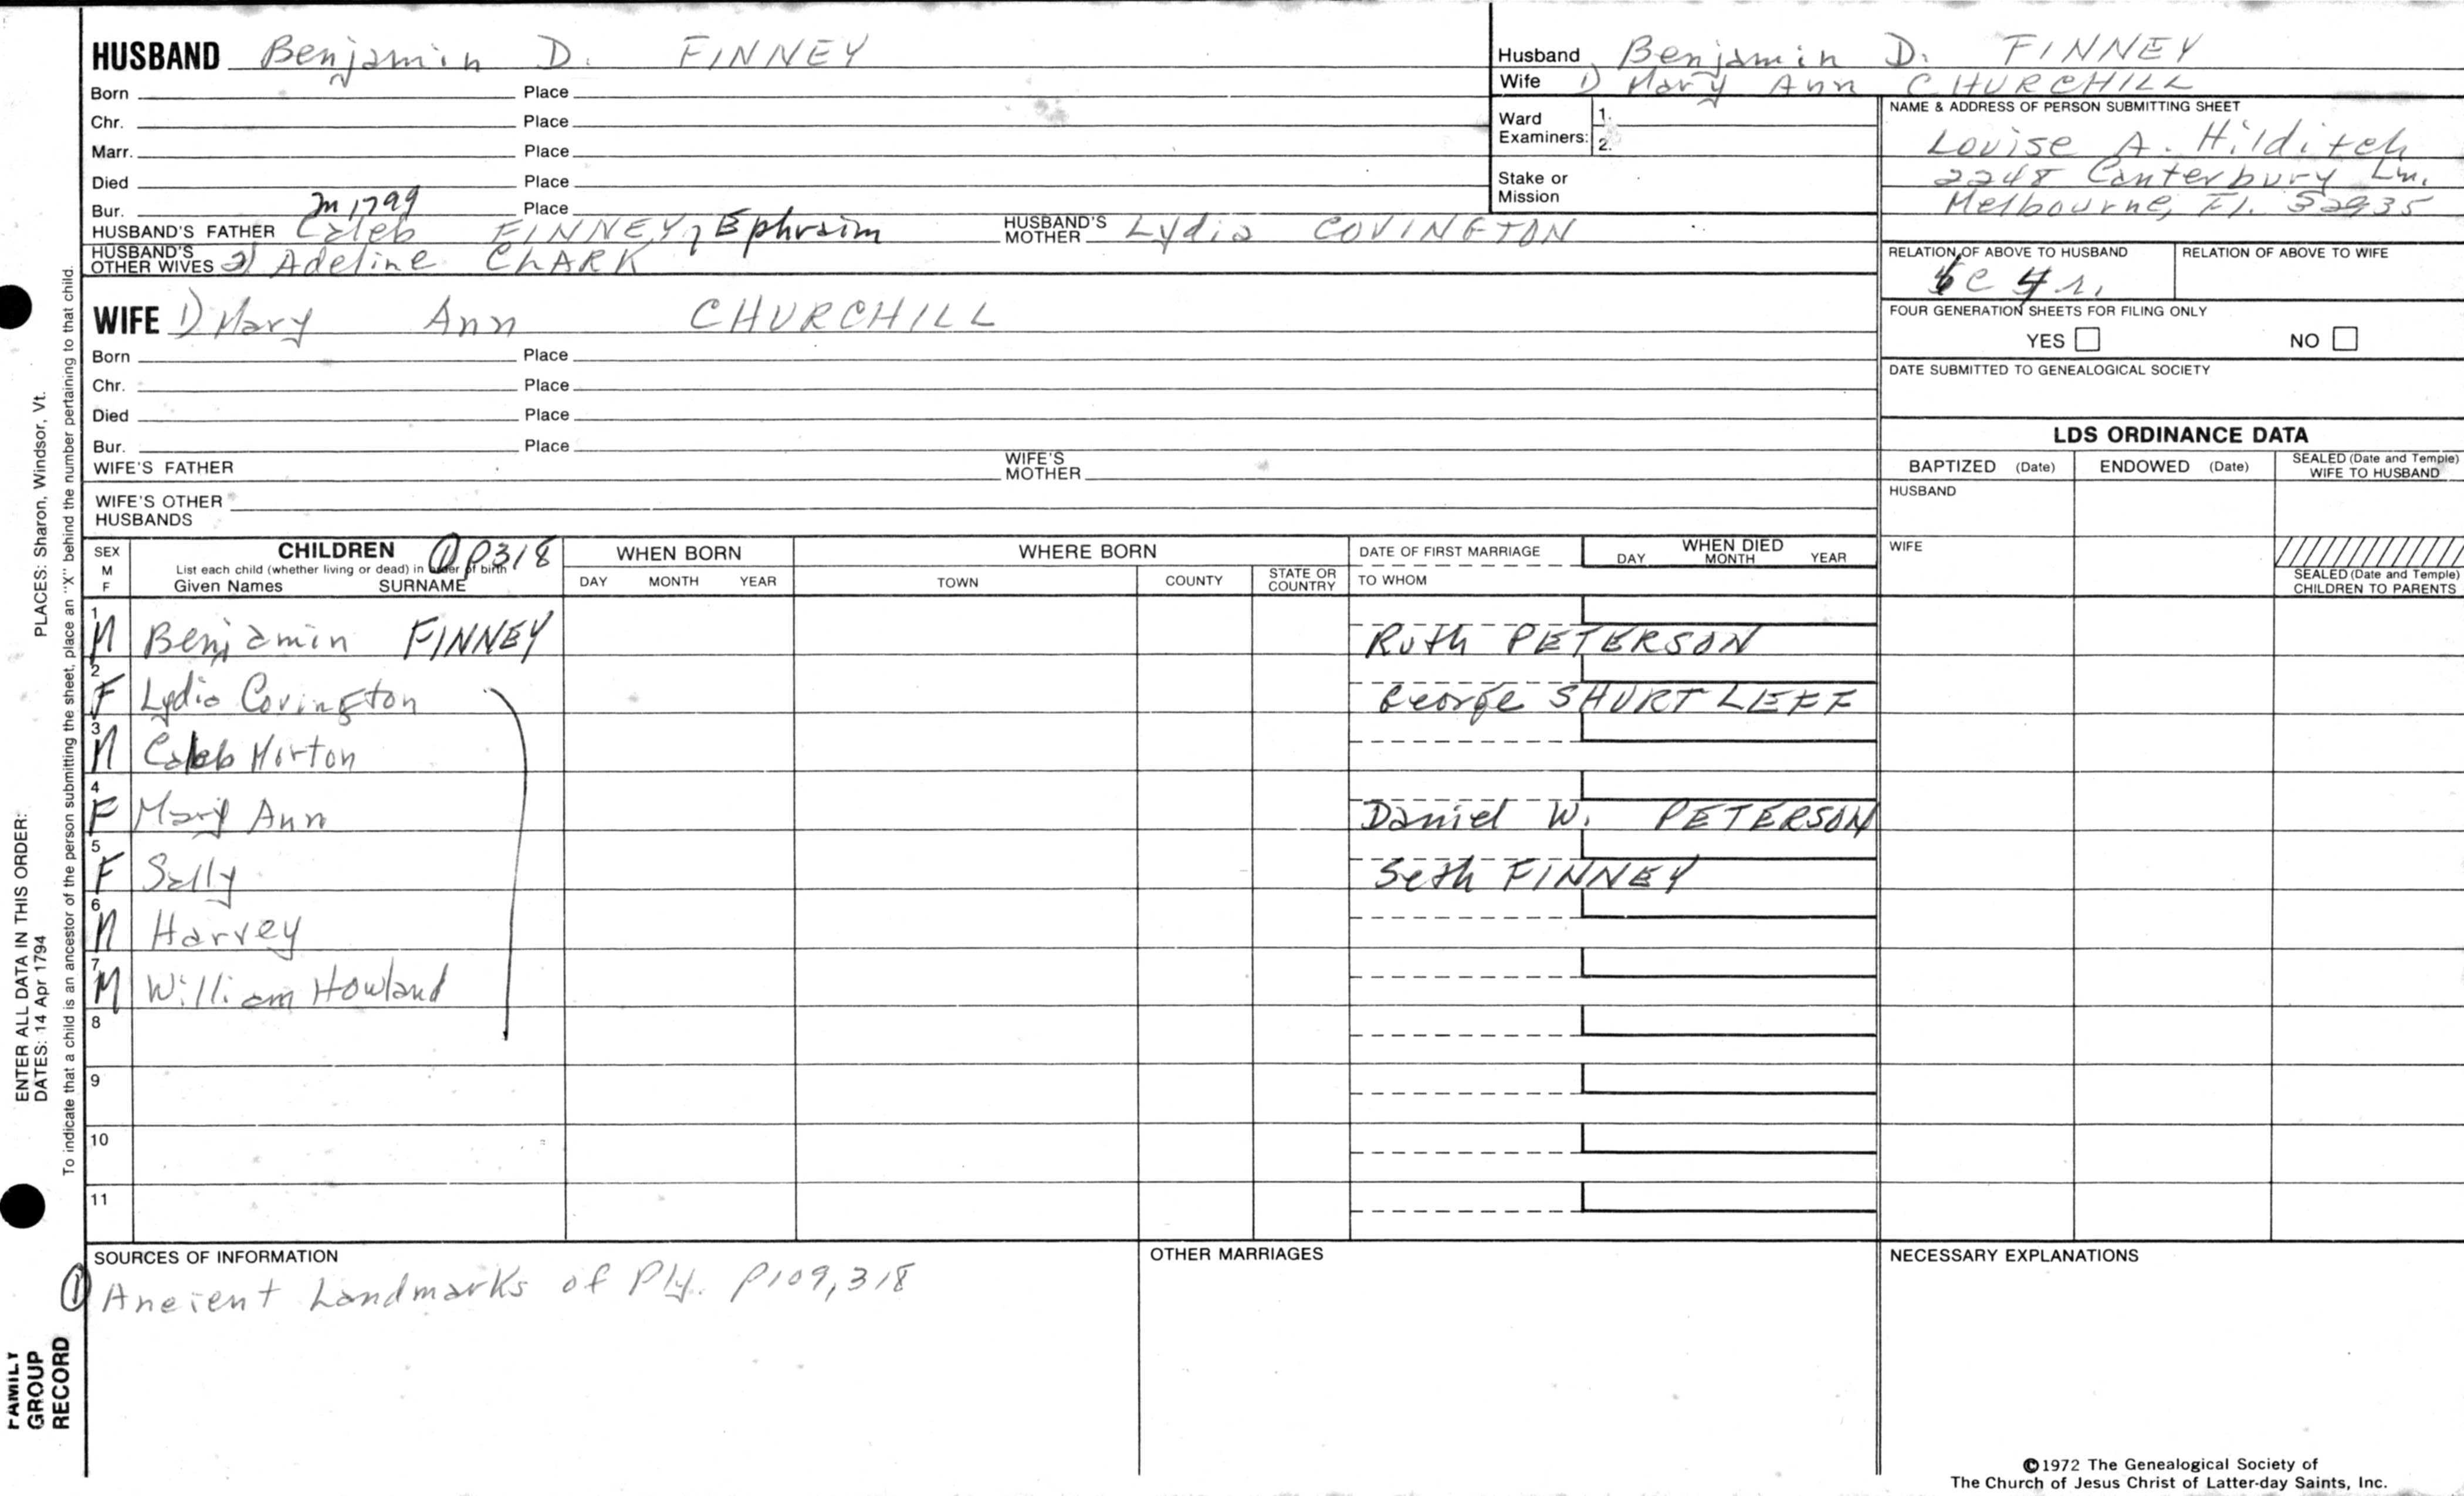 HUSBAND Benjamin D. FINNEY
Born Place
Chr. Place
Marr. Place
Died Place
Bur. Place
m 1799
HUSBAND'S FATHER Caleb FINNEY, Ephraim HUSBAND'S MOTHER Lydia COVINGTON
HUSBAND'S OTHER WIVES 2) Adeline CLARK
WIFE 1) Mary Ann CHURCHILL
Born Place
Chr. Place
Died Place
Bur. Place
WIFE'S FATHER WIFE'S MOTHER
WIFE'S OTHER HUSBANDS
Husband Benjamin D. FINNEY
Wife 1) Mary Ann CHURCHILL
Ward Examiners: 1. 2.
Stake or Mission
NAME & ADDRESS OF PERSON SUBMITTING SHEET
Louise A. Hilditch
2248 Canterbury Ln.
Melbourne, Fl. 32935
RELATION OF ABOVE TO HUSBAND RELATION OF ABOVE TO WIFE
FOUR GENERATION SHEETS FOR FILING ONLY
YES NO
DATE SUBMITTED TO GENEALOGICAL SOCIETY
LDS ORDINANCE DATA
BAPTIZED (Date) ENDOWED (Date) SEALED (Date and Temple) WIFE TO HUSBAND
HUSBAND
WIFE
SEALED (Date and Temple) CHILDREN TO PARENTS
SEX M F
CHILDREN 1 P318
List each child (whether living or dead) in order of birth
Given Names SURNAME
WHEN BORN
DAY MONTH YEAR
WHERE BORN
TOWN COUNTY STATE OR COUNTRY
DATE OF FIRST MARRIAGE
TO WHOM
WHEN DIED
DAY MONTH YEAR
1 M Benjamin FINNEY Ruth PETERSON
2 F Lydia Covington George SHURTLEFF
3 M Caleb Morton
4 F Mary Ann Daniel W. PETERSON
5 F Sally Seth FINNEY
6 M Harvey
7 M William Howland
8
9
10
11
SOURCES OF INFORMATION
1 Ancient Landmarks of Ply. P109, 318
OTHER MARRIAGES
NECESSARY EXPLANATIONS
©1972 The Genealogical Society of
The Church of Jesus Christ of Latter-day Saints, Inc.
FAMILY GROUP RECORD
ENTER ALL DATA IN THIS ORDER:
DATES: 14 Apr 1794
PLACES: Sharon, Windsor, Vt.
To indicate that a child is an ancestor of the person submitting the sheet, place an "X" behind the number pertaining to that child.